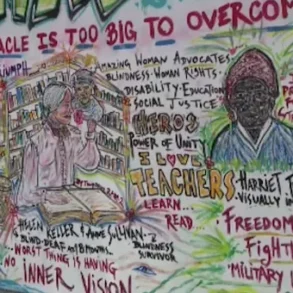 ACLE IS TOO BIG TO OVERCOM
TRIUMPH
AMAZING WOMAN ADVOCATES
BLINDNESS - WOMAN RIGHTS -
DISABILITY - EDUCATION
SOCIAL JUSTICE
HEROS
POWER OF UNITY
I LOVE
TEACHERS
LEARN...
READ...
HARRIET T
VISUALLY IM
HELEN KELLER & ANNE SULLIVAN
BLIND-DEAF
BLINDNESS
SURVIVOR
...WORST THING IS HAVING
NO INNER VISION
FREEDOM
FIGHT
"MILITARY